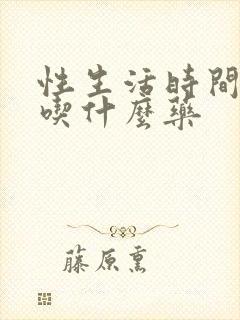 性生活時間
喫什麼藥
藤原熏